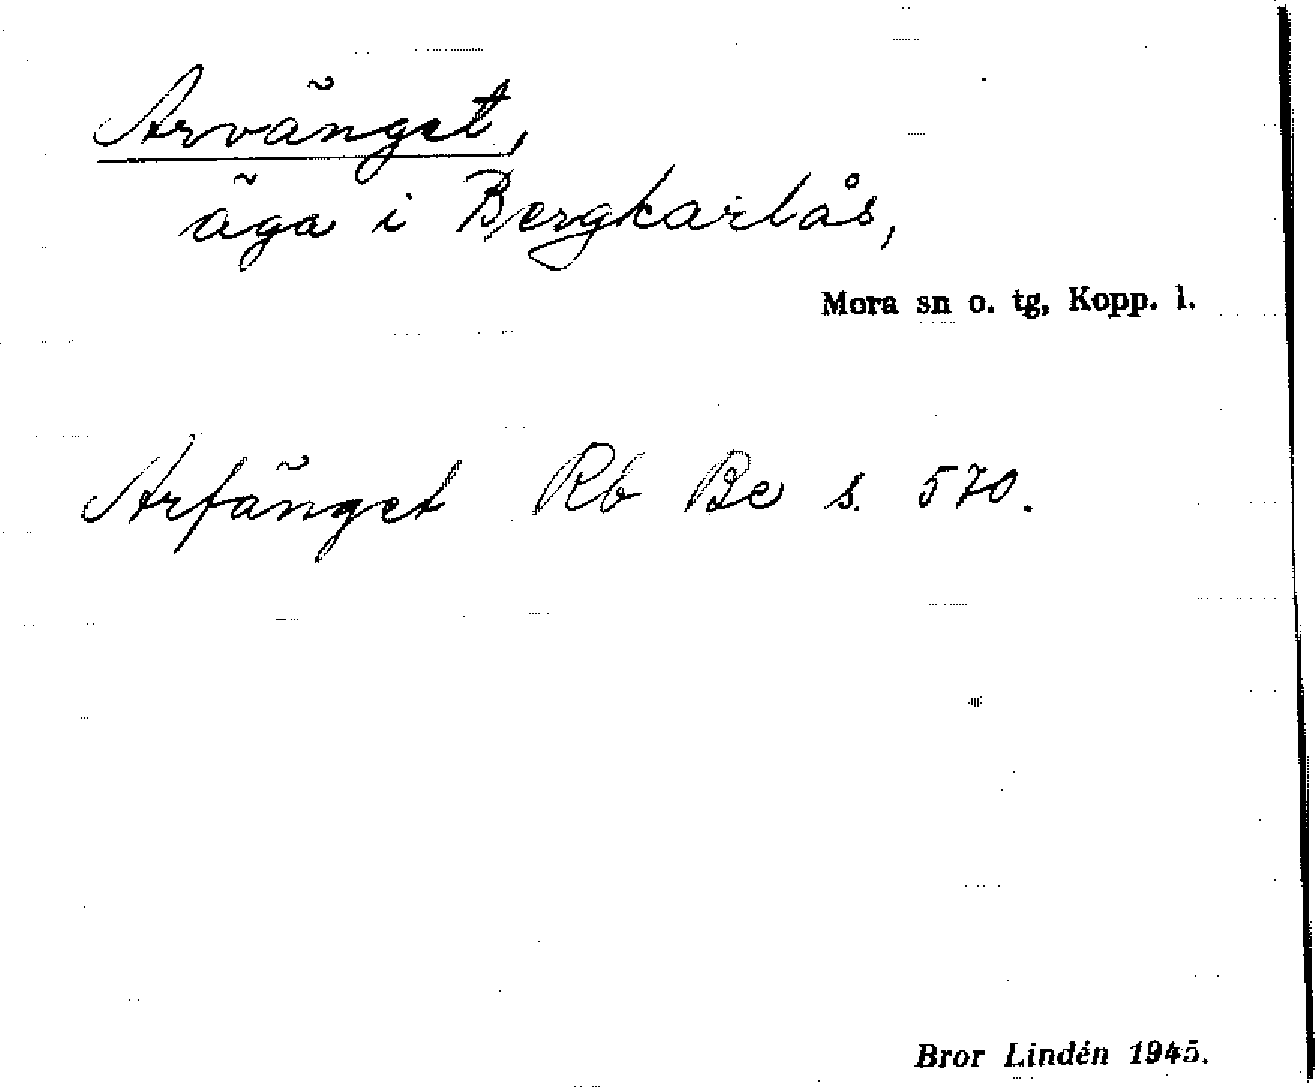 Arvänget,
äga i Bergkarlås,
Mora sn o. tg, Kopp. l.
Arfänget Rb Be s. 570.
Bror Lindén 1945.